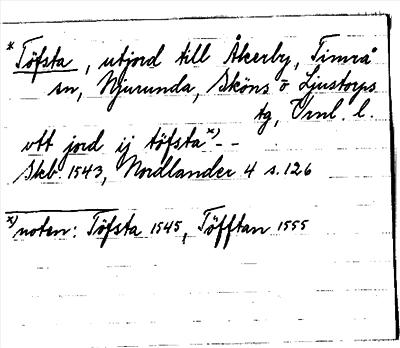 * Töfsta, utjord till Åkerby, Timrå
sn, Njurunda, Sköns o Ljustorps
tg, Vrnl. l.
vtt jord ij töfsta x) - -
Skb. 1543, Nordlander 4 s. 126
x) noten: Töfsta 1545, Töfftan 1555